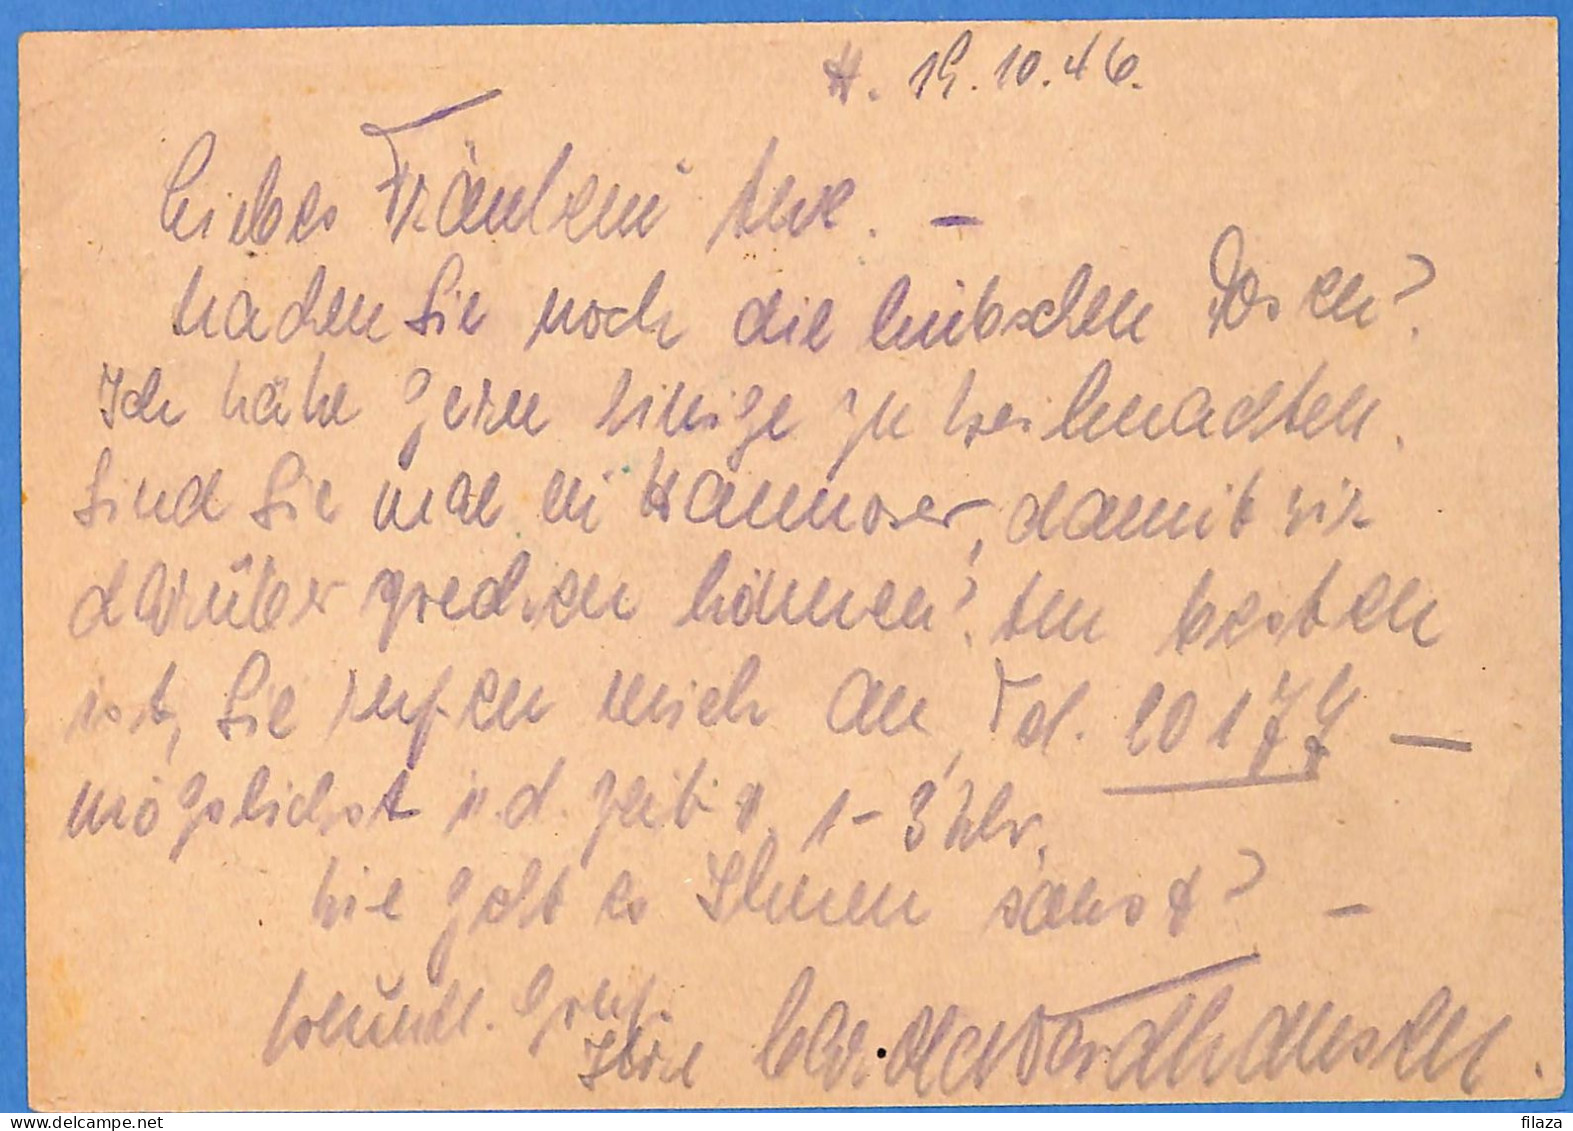 H. 19.10.46.
Liebes Fräulein
machen Sie noch die hübschen Dosen?
Ich hätte gern einige zu Weihnachten.
Sind Sie mal in Hannover, damit wir
darüber sprechen können? Am besten
ist, Sie rufen mich an, Tel. 20177 —
möglichst i. d. Zeit v. 1-3 Uhr.
Wie geht es Ihnen sonst? —
Freundl. Gruß.
Ihre
filaza